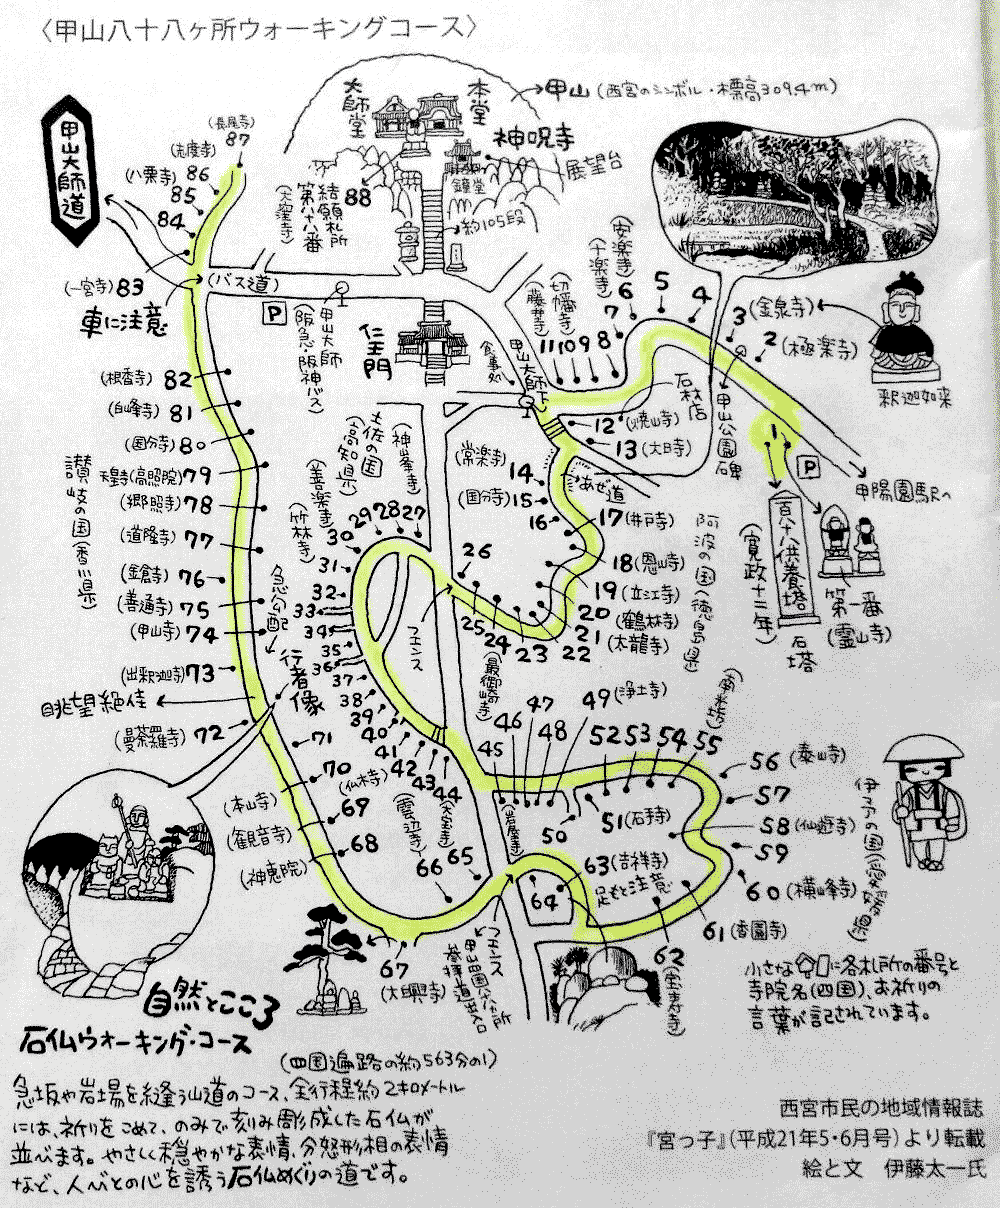 〈甲山八十八ヶ所ウォーキングコース〉
甲山大師道
大師堂
本堂
甲山(西宮のシンボル・標高309.4m)
神呪寺
展望台
鐘堂
約105段
88
結願札所
第八十八番
(大窪寺)
(長尾寺)
87
(志度寺)
86
(八栗寺)
85
84
(一宮寺)83
車に注意
(バス道)
P
甲山大師
(阪急・阪神バス)
仁王門
食事処
甲山大師
(安楽寺)
(十楽寺)
切幡寺
(藤井寺)
11 10 9 8 7 6 5 4
3(金泉寺)
2(極楽寺)
釈迦如来
石材店
甲山公園碑
1
P
甲陽園駅へ
12(焼山寺)
13(大日寺)
あぜ道
(常楽寺)14
(国分寺)15
16
17(井戸寺)
18(恩山寺)
19(立江寺)
20(鶴林寺)
21(太龍寺)
22
23
24
25
26
阿波の国(徳島県)
百十八供養塔
(寛政十二年)
石塔
第一番(霊山寺)
(根香寺)82
(白峰寺)81
(国分寺)80
天皇寺(高照院)79
(郷照寺)78
(道隆寺)77
(金倉寺)76
(善通寺)75
(甲山寺)74
(出釈迦寺)73
讃岐の国(香川県)
眺望絶佳
(曼荼羅寺)72
71
70
(本山寺)
69
(観音寺)
68
(神恵院)
急勾配
行者像
土佐の国(高知県)
(神峯寺)
(善楽寺)
(竹林寺)
27
28
29
30
31
32
33
34
35
36
37
38
39
40
41
42
43
44
フェンス
(最御崎寺)
(仏木寺)
(雲辺寺)
45
(岩屋寺)
46
47
48
49(浄土寺)
50
51(石手寺)
52
53
54
55
56(泰山寺)
57
58(仙遊寺)
59
60(横峰寺)
61(香園寺)
62
(宝寿寺)
63(吉祥寺)
足もと注意
64
65
66
67
(大興寺)
フェンス
甲山四国八十八ヶ所
参拝道出入口
小さな に各札所の番号と
寺院名(四国)、お祈りの
言葉が記されています。
自然とこころ
石仏ウォーキング・コース
(四国遍路の約563分の1)
急坂や岩場を縫う山道のコース、全行程約2キロメートル
には、祈りをこめて、のみで刻み彫成した石仏が
並びます。やさしく穏やかな表情、分怒形相の表情
など、人びとの心を誘う石仏めぐりの道です。
西宮市民の地域情報誌
『宮っ子』(平成21年5・6月号)より転載
絵と文 伊藤太一氏